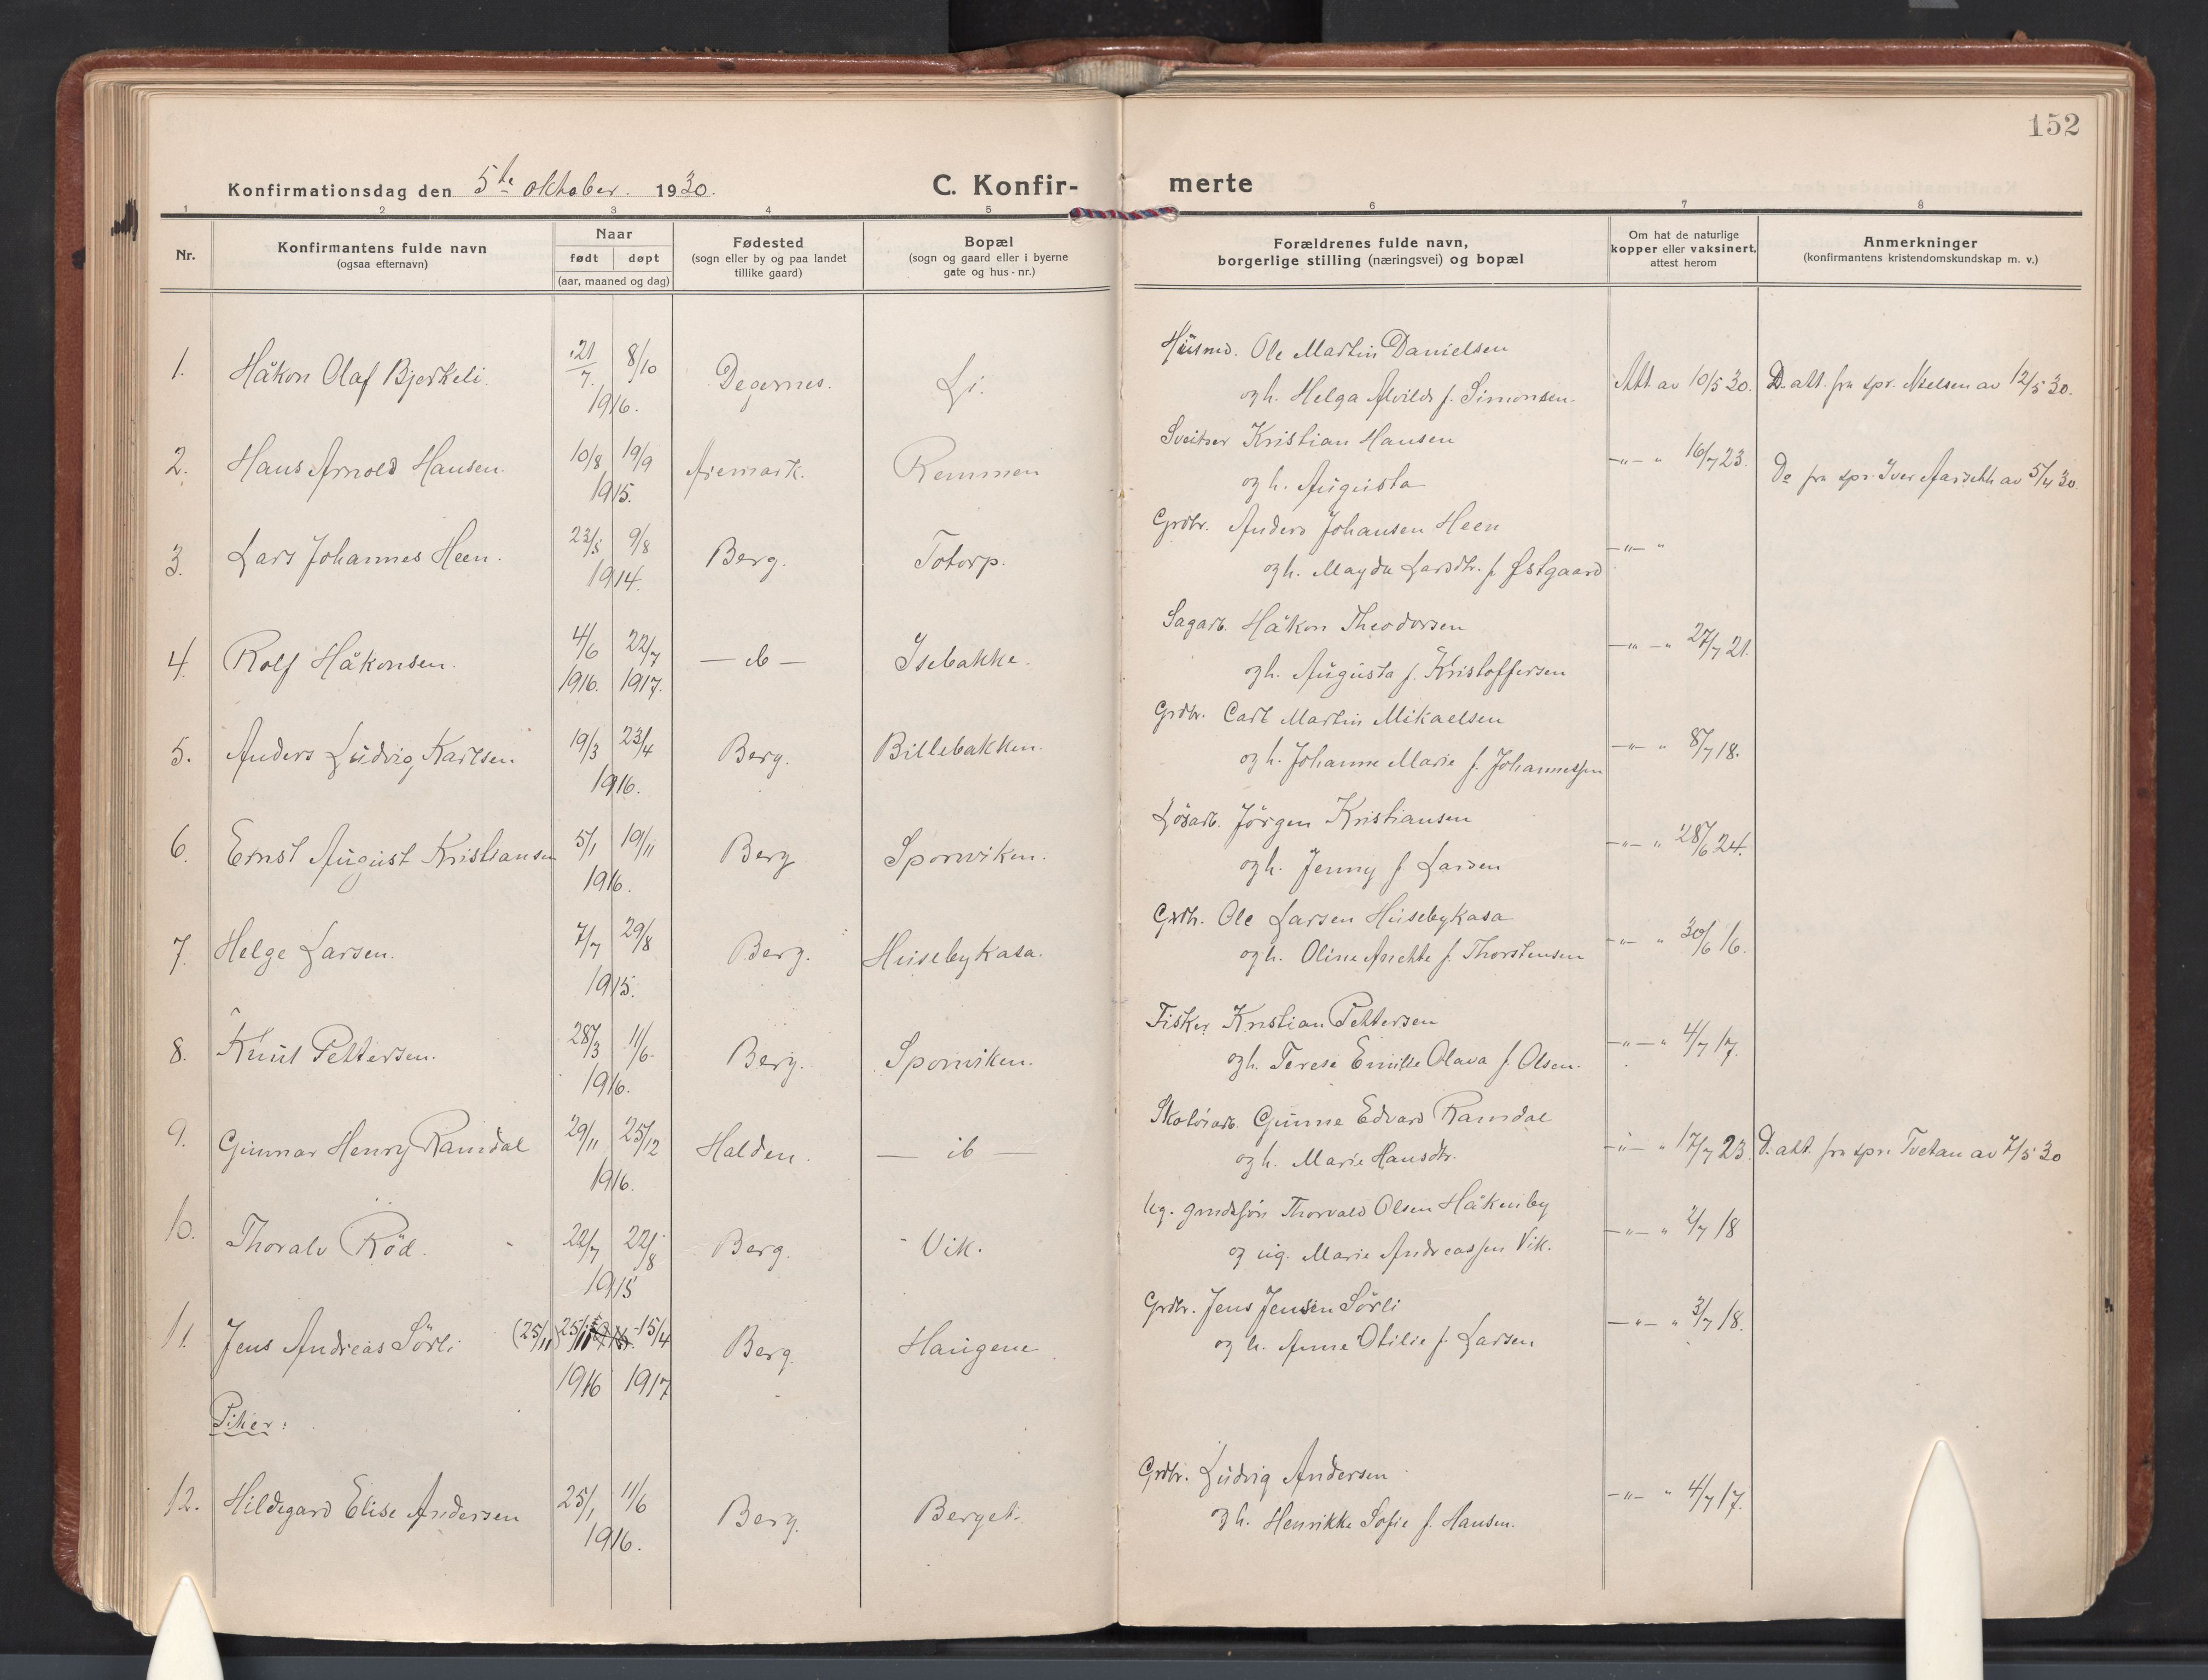 152
Konfirmationsdag den 5te oktober. 1930.
C. Konfir-
merte
1 2 3 4 5 6 7 8
Nr.
Konfirmantens fulde navn
(ogsaa efternavn)
Naar
født døpt
(aar, maaned og dag)
Fødested
(sogn eller by og paa landet
tillike gaard)
Bopæl
(sogn og gaard eller i byerne
gate og hus-nr.)
Forældrenes fulde navn,
borgerlige stilling (næringsvei) og bopæl
Om hat de naturlige
kopper eller vaksinert,
attest herom
Anmerkninger
(konfirmantens kristendomskundskap m. v.)
1. Håkon Olaf Bjerkeli. 21/7. 8/10 1916. Degernes. Li.
Husmd. Ole Martin Danielsen
og h. Helga Alvilde f. Simonsen.
Att av 10/5 30. D. att. fra spr. Nielsen av 12/5 30.
2. Hans Arnold Hansen. 10/8 19/9 1915. Aremark. Remmen
Sveitser Kristian Hansen
og h. Augusta
—"— " 16/7 23. Do fra spr. Iver Aarseth av 5/4 30.
3. Lars Johannes Heen. 23/5 9/8 1914. Berg. Totorp.
Grdbr. Anders Johansen Heen
og h. Magda Larsdtr. f. Østgaard
—"— "
4. Rolf Håkonsen. 4/6 1916. 22/7 1917. — ib — Isebakke.
Sagarb. Håkon Theodorsen
og h. Augusta f. Kristoffersen
—"— " 27/7 21.
5. Anders Ludvig Karlsen. 19/3 23/4 1916. Berg. Billebakken.
Grdbr. Carl Martin Mikaelsen
og h. Johanne Marie f. Johannessen
—"— " 8/7 18.
6. Ernst August Kristiansen 5/1 19/11 1916. Berg Sponviken.
Løsarb. Jörgen Kristiansen
og h. Jenny f. Larsen
—"— " 28/6 24.
7. Helge Larsen. 7/7 29/8 1915. Berg. Husebykasa.
Grdbr. Ole Larsen Husebykasa
og h. Oline Anette f. Thorstensen
—"— " 30/6 16.
8. Knut Pettersen. 28/3 11/6. 1916. Berg. Sponviken.
Fisker Kristian Pettersen
og h. Terese Emilie Olava f. Olsen.
—"— " 4/7 17.
9. Gunnar Henry Ramdal 29/11 25/12 1916. Halden. — ib —
Skotöiarb. Gunne Edvard Ramdal
og h. Marie Hansdtr.
—"— " 17/7 23. D. att. fra spr. Tvetan av 7/5 30
10. Thoralv Röd. 22/7 22/8 1915 Berg. Vik.
Ug. grndsøn Thorvald Olsen Håkenby
og ug. Marie Andreassen Vik.
—"— " 2/7 18
11. Jens Andreas Sörli (25/11) 25/11 15/4 1916 1917 Berg. Haugene
Grdbr. Jens Jensen Sörli
og h. Anne Otilie f. Larsen
—"— " 3/7 18.
Piker:
12. Hildegard Elise Andersen 25/1 11/6 1916. Berg. Berget.
Grdbr. Ludvig Andersen
og h. Henrikke Sofie f. Hansen.
—"— " 4/7 17.